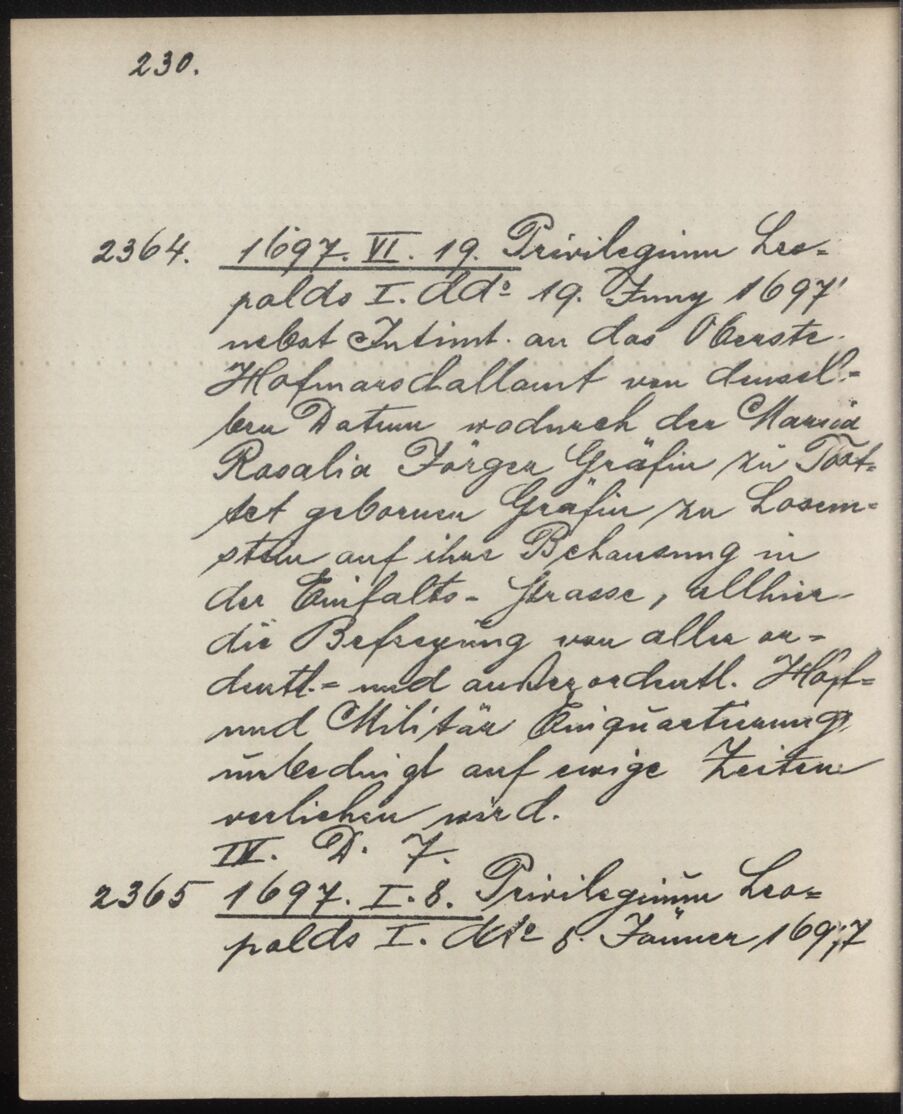 230.
2364. 1697. VI. 19. Privilegium Leo=
polds I. ddo 19. Juny 1697
nebst Intimt. an das Oberste
Hofmarschallamt von densel=
ben Datum wodurch der Maria
Rosalia Jörger Gräfin zu Tost=
tet gebornen Gräfin zu Losem=
stein auf ihre Behausung in
der Einfalts-Strasse, allhier
die Befreyung von aller or=
dentl.= und außerordentl. Hof=
und Militär Einquartierung
unbedingt auf ewige Zeiten
verliehen wird.
IV. D. 7.
2365 1697. I. 8. Privilegium Leo=
polds I. ddo 8. Jänner 1697